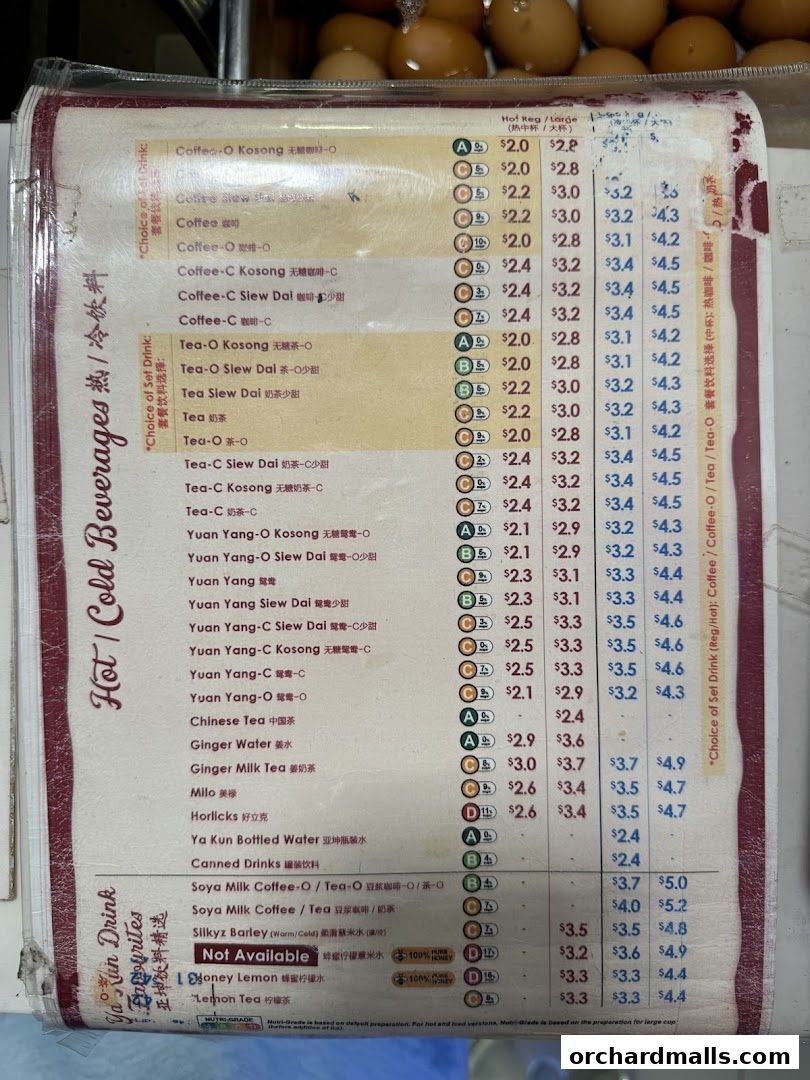 Hot Reg / Large
(热中杯 / 大杯)
Coffee-O Kosong 无糖咖啡-O A 0% $2.0 $2.8
C 5% $2.0 $2.8
Coffee Siew C 5% $2.2 $3.0 $3.2
Coffee 咖啡 C 9% $2.2 $3.0 $3.2 $4.3
Coffee-O C 10% $2.0 $2.8 $3.1 $4.2
Coffee-C Kosong 无糖咖啡-C C $2.4 $3.2 $3.4 $4.5
Coffee-C Siew Dai 咖啡-C少甜 C 3% $2.4 $3.2 $3.4 $4.5
Coffee-C 咖啡-C C 7% $2.4 $3.2 $3.4 $4.5
Tea-O Kosong 无糖茶-O A 0% $2.0 $2.8 $3.1 $4.2
Tea-O Siew Dai 茶-O少甜 B 5% $2.0 $2.8 $3.1 $4.2
Tea Siew Dai 奶茶少甜 B 5% $2.2 $3.0 $3.2 $4.3
Tea 奶茶 C 9% $2.2 $3.0 $3.2 $4.3
Tea-O 茶-O C 9% $2.0 $2.8 $3.1 $4.2
Tea-C Siew Dai 奶茶-C少甜 C 2% $2.4 $3.2 $3.4 $4.5
Tea-C Kosong 无糖奶茶-C C 0% $2.4 $3.2 $3.4 $4.5
Tea-C 奶茶-C C 7% $2.4 $3.2 $3.4 $4.5
Yuan Yang-O Kosong 无糖鸳鸯-O A 0% $2.1 $2.9 $3.2 $4.3
Yuan Yang-O Siew Dai 鸳鸯-O少甜 B $2.1 $2.9 $3.2 $4.3
Yuan Yang 鸳鸯 C 9% $2.3 $3.1 $3.3 $4.4
Yuan Yang Siew Dai 鸳鸯少甜 B 5% $2.3 $3.1 $3.3 $4.4
Yuan Yang-C Siew Dai 鸳鸯-C少甜 C 3% $2.5 $3.3 $3.5 $4.6
Yuan Yang-C Kosong 无糖鸳鸯-C C 0% $2.5 $3.3 $3.5 $4.6
Yuan Yang-C 鸳鸯-C C 7% $2.5 $3.3 $3.5 $4.6
Yuan Yang-O 鸳鸯-O C $2.1 $2.9 $3.2 $4.3
Chinese Tea 中国茶 A 0% - $2.4 - -
Ginger Water 姜水 A 0% $2.9 $3.6 - -
Ginger Milk Tea 姜奶茶 C $3.0 $3.7 $3.7 $4.9
Milo 美禄 C 9% $2.6 $3.4 $3.5 $4.7
Horlicks 好立克 D 11% $2.6 $3.4 $3.5 $4.7
Ya Kun Bottled Water 亚坤瓶装水 A 0% - - $2.4 -
Canned Drinks 罐装饮料 B 4% - - $2.4 -
Soya Milk Coffee-O / Tea-O 豆浆咖啡-O / 茶-O B 4% - - $3.7 $5.0
Soya Milk Coffee / Tea 豆浆咖啡 / 奶茶 C 7% - - $4.0 $5.2
Silkyz Barley (Warm/Cold) 柔滑薏米水 C 7% - $3.5 $3.5 $4.8
Not Available 蜂蜜柠檬薏米水 100% PURE HONEY D 17% - $3.2 $3.6 $4.9
Honey Lemon 蜂蜜柠檬水 100% PURE HONEY D - $3.3 $3.3 $4.4
Lemon Tea 柠檬茶 C - $3.3 $3.3 $4.4
NUTRI-GRADE
Nutri-Grade is based on default preparation. For hot and iced versions, Nutri-Grade is based on the preparation for large cup
(before addition of ice).
Hot / Cold Beverages 热 / 冷饮料
*Choice of Set Drink:
套餐饮料选择:
*Choice of Set Drink:
套餐饮料选择:
Ya Kun Drink
Favourites
亚坤饮料精选
*Choice of Set Drink (Reg/Hot): Coffee / Coffee-O / Tea / Tea-O 套餐饮料选择 (中杯): 热咖啡 / 咖啡-O / 热奶茶
orchardmalls.com